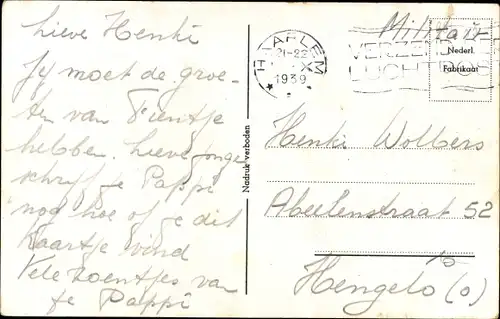 Lieve Henki
Jy moet de groe-
ten van Tientje
hebben. Lieve jonge
schryf je Pappi
nog hoe of je dit
Kaartje vind
Vele zoentjes van
je Pappi
Nadruk verboden
HAARLEM
21-22
X
1939
VERZEND
LUCHTPOST
Militair
Nederl.
Fabrikaat
Henki Wolbers
Abeelenstraat 52
Hengelo (o)